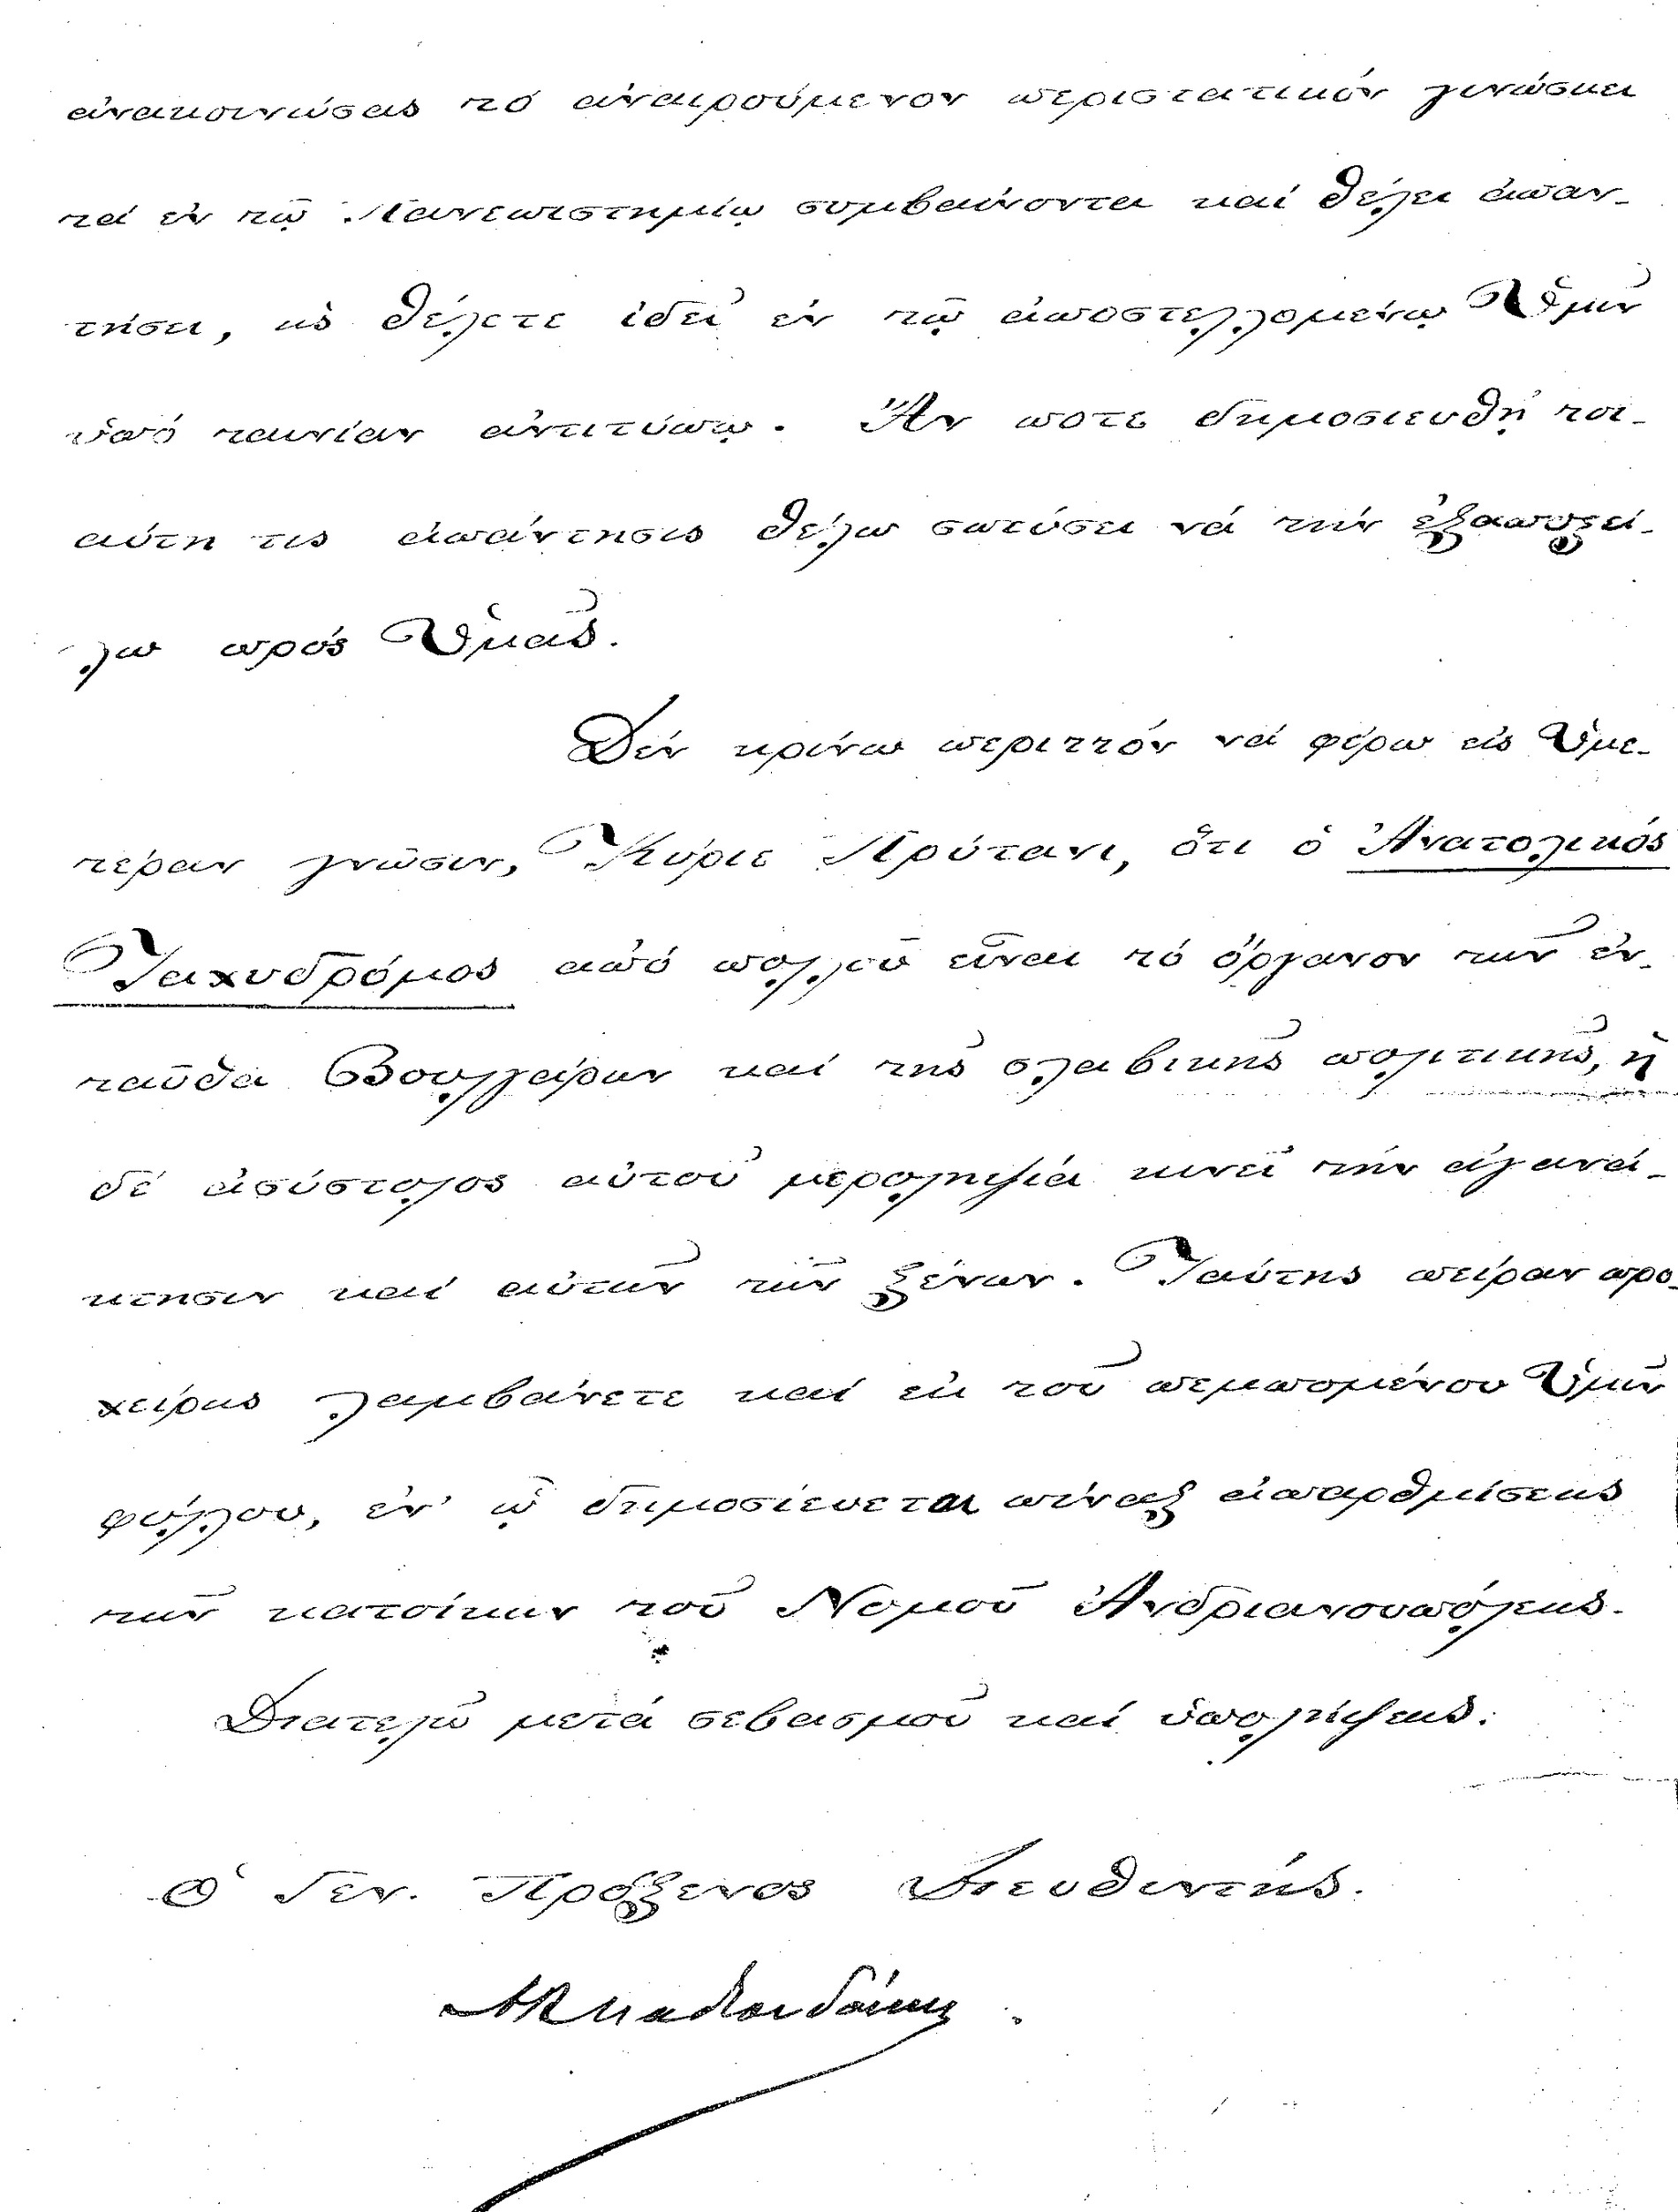 ἀνακοινώσας τὸ ἀναιρούμενον περιστατικὸν γινώσκει
τὰ ἐν τῷ Πανεπιστημίῳ συμβαίνοντα καὶ θέλει ἀπαν-
τήσει, ὡς θέλετε ἰδεῖ ἐν τῷ ἀποστελλομένῳ Ὑμῖν
ὑπὸ ταινίαν ἀντιτύπῳ. Ἄν ποτε δημοσιευθῇ τοι-
αύτη τις ἀπάντησις θέλω σπεύσει νὰ τὴν ἐξαποστεί-
λω πρὸς Ὑμᾶς.
Δὲν κρίνω περιττὸν νὰ φέρω εἰς Ὑμε-
τέραν γνῶσιν, Κύριε Πρύτανι, ὅτι ὁ Ἀνατολικὸς
Ταχυδρόμος ἀπὸ πολλοῦ εἶναι τὸ ὄργανον τῶν ἐν-
ταῦθα Βουλγάρων καὶ τῆς σλαβικῆς πολιτικῆς, ἡ
δὲ ἀσύστολος αὐτοῦ μεροληψία κινεῖ τὴν ἀγανά-
κτησιν καὶ αὐτῶν τῶν ξένων. Ταύτης πεῖραν προ-
χείρως λαμβάνετε καὶ ἐκ τοῦ πεμπομένου Ὑμῖν
φύλλου, ἐν ᾧ δημοσίευεται πίναξ ἀπαριθμίσεως
τῶν κατοίκων τοῦ Νομοῦ Ἀνδριανουπόλεως.
Διατελῶ μετὰ σεβασμοῦ καὶ ὑπολήψεως.
Ὁ Γεν. Πρόξενος Διευθυντής.